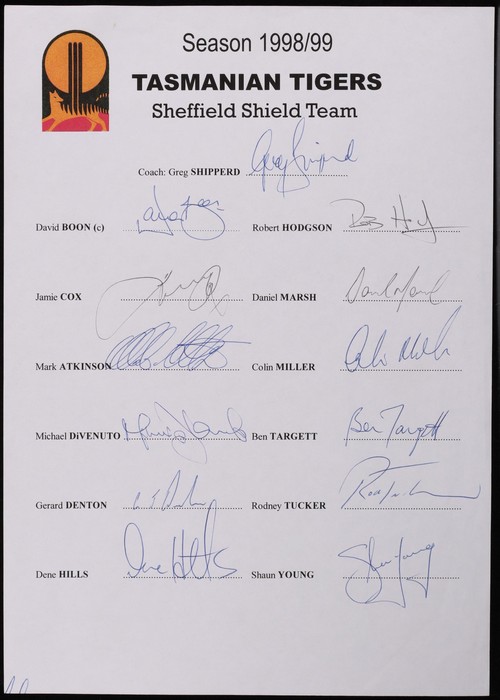 Season 1998/99
TASMANIAN TIGERS
Sheffield Shield Team
Coach: Greg SHIPPERD Greg Shipperd
David BOON (c) Robert HODGSON
Jamie COX Daniel MARSH
Mark ATKINSON Colin MILLER
Michael DiVENUTO Ben TARGETT Ben Targett
Gerard DENTON Rodney TUCKER
Dene HILLS Dene Hills Shaun YOUNG Shaun Young